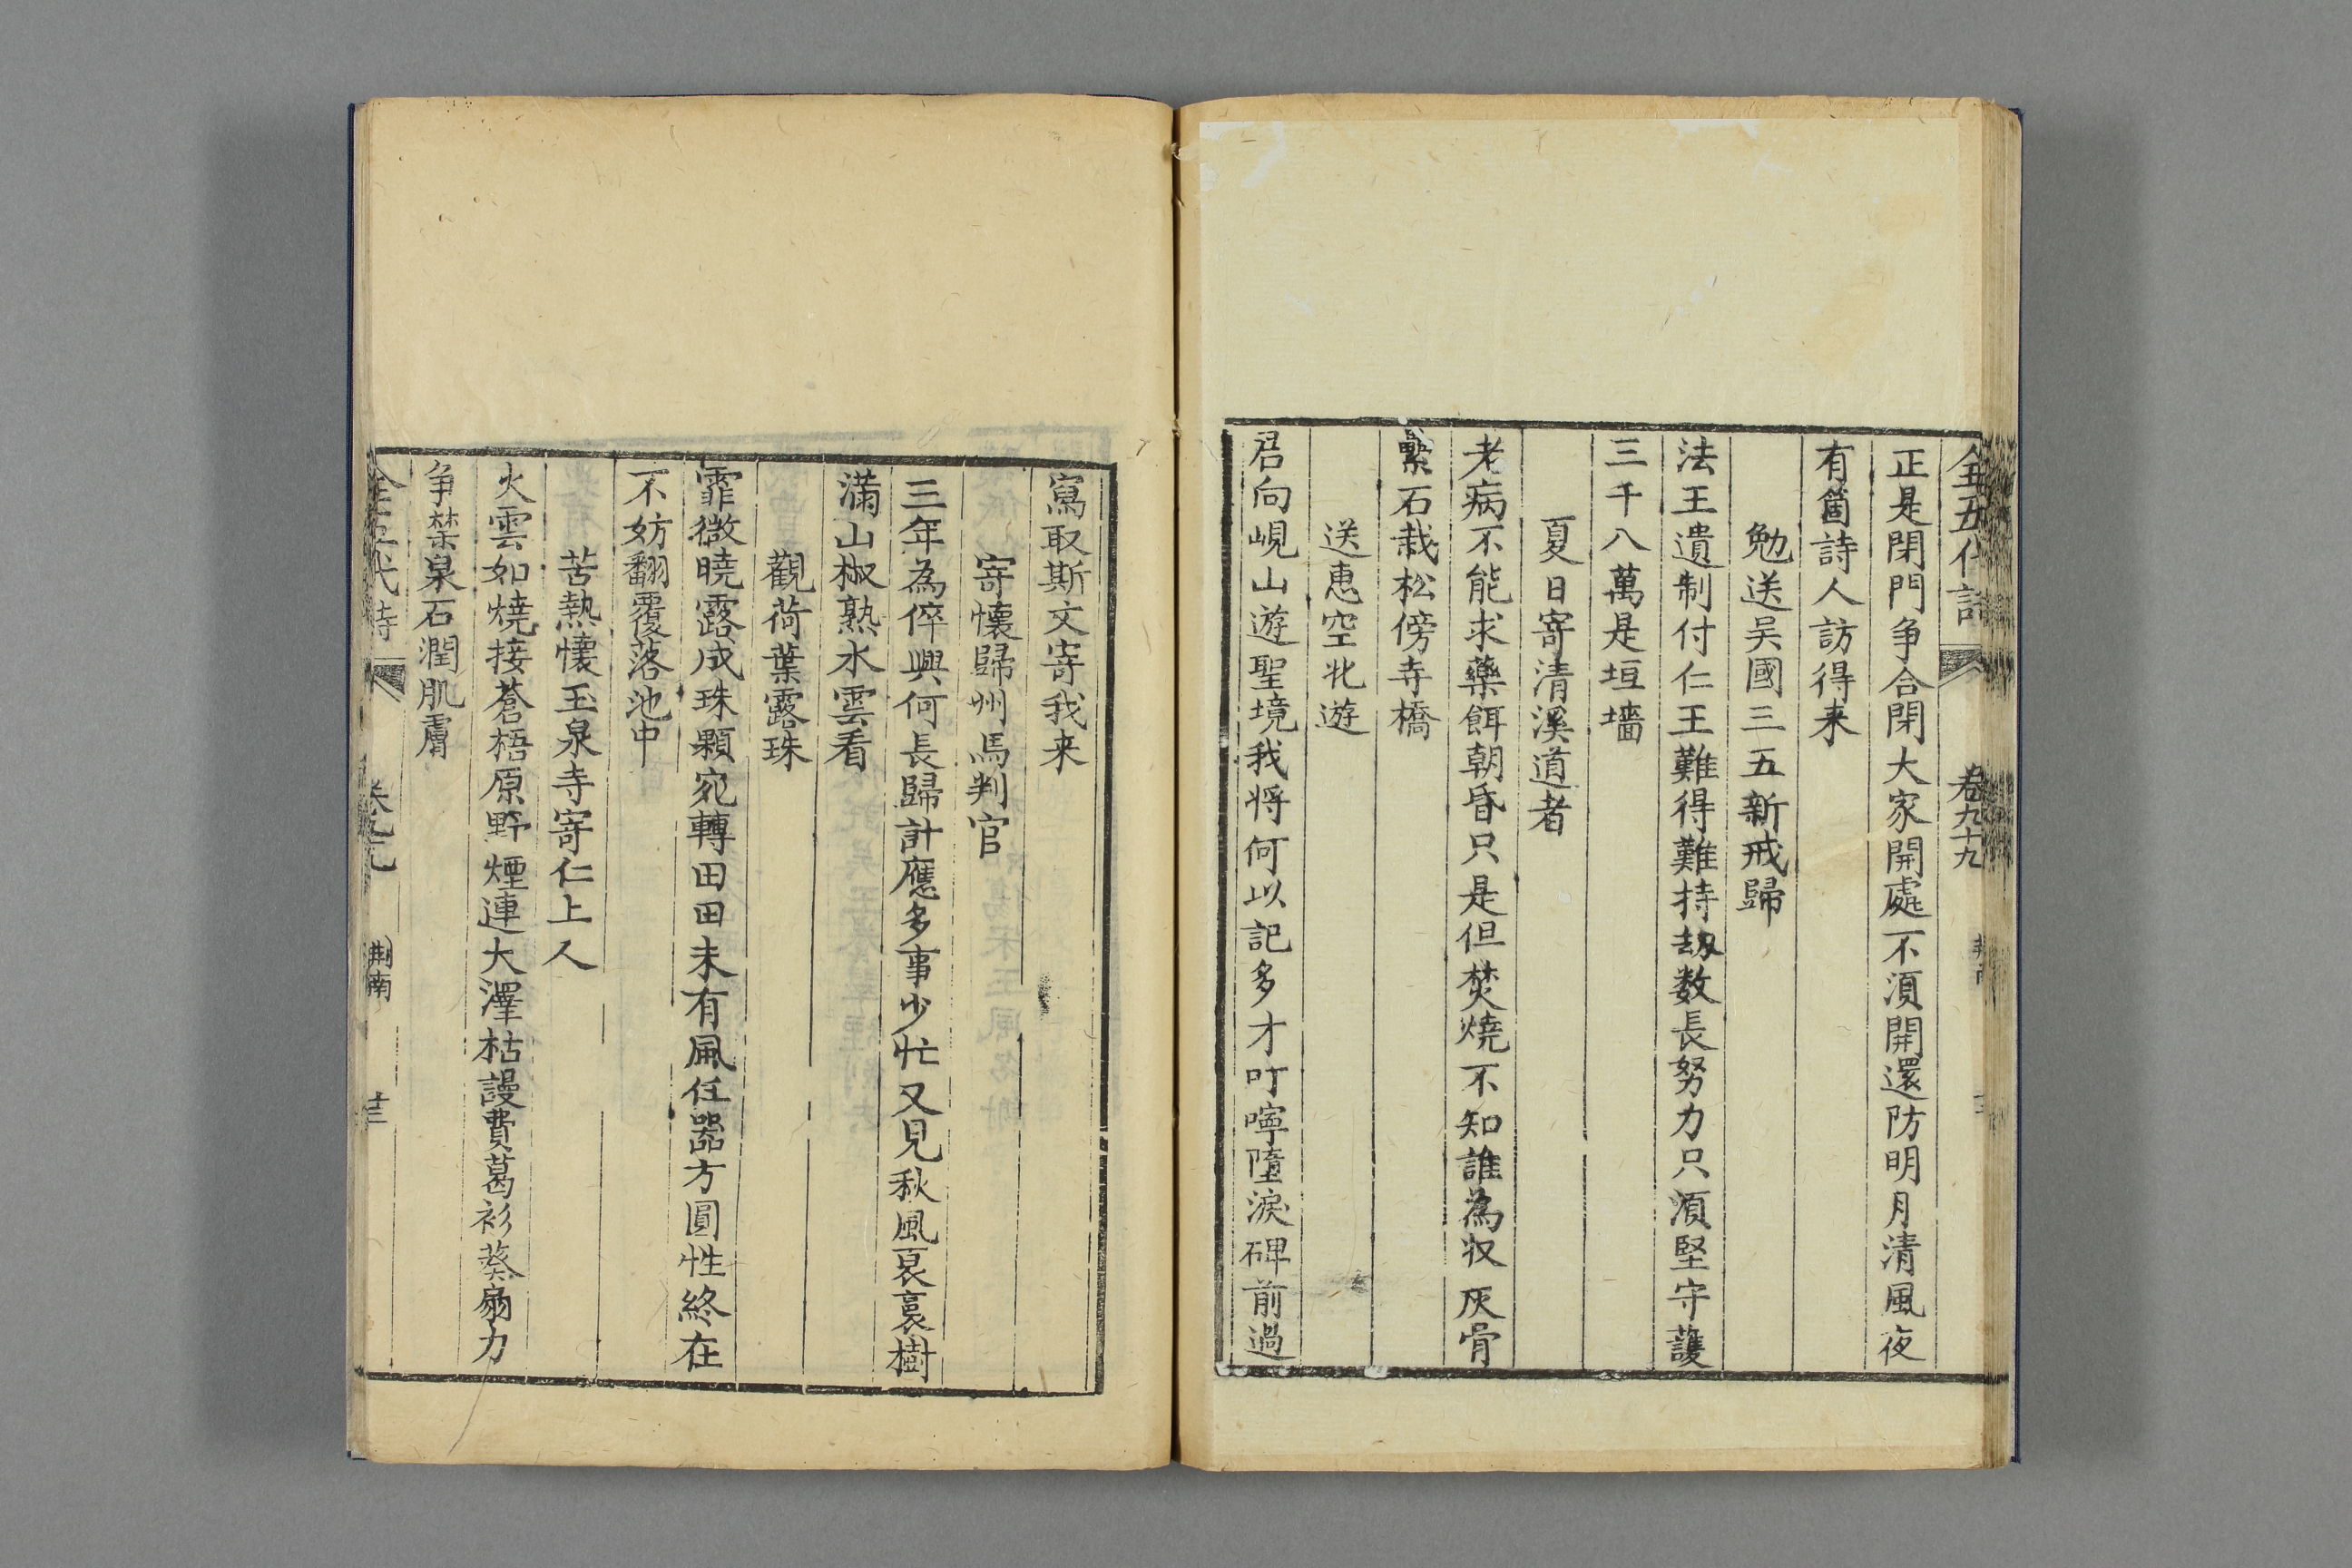 全五代詩 卷九十九
正是閉門争合閉大家開處不湏開還防明月清風夜
有箇詩人訪得来
勉送吴國三五新戒歸
法王遺制付仁王難得難持刼数長努力只湏堅守護
三千八萬是垣墻
夏日寄清溪道者
老病不能求藥餌朝昏只是但焚燒不知誰為収灰骨
繫石栽松傍寺橋
送惠空北遊
君向峴山遊聖境我将何以記多才叮嚀墮淚碑前過
寫取斯文寄我来
寄懷歸州馬判官
三年為倅興何長歸計應多事少忙又見秋風裛裛樹
滿山椒熟水雲看
觀荷葉露珠
霏微曉露成珠顆宛轉田田未有風任器方圓性終在
不妨翻覆落池中
苦熱懷玉泉寺寄仁上人
火雲如燒接蒼梧原野煙連大澤枯謾費葛衫葵扇力
争禁泉石潤肌膚
全五代詩 卷九十九 荆南 十三